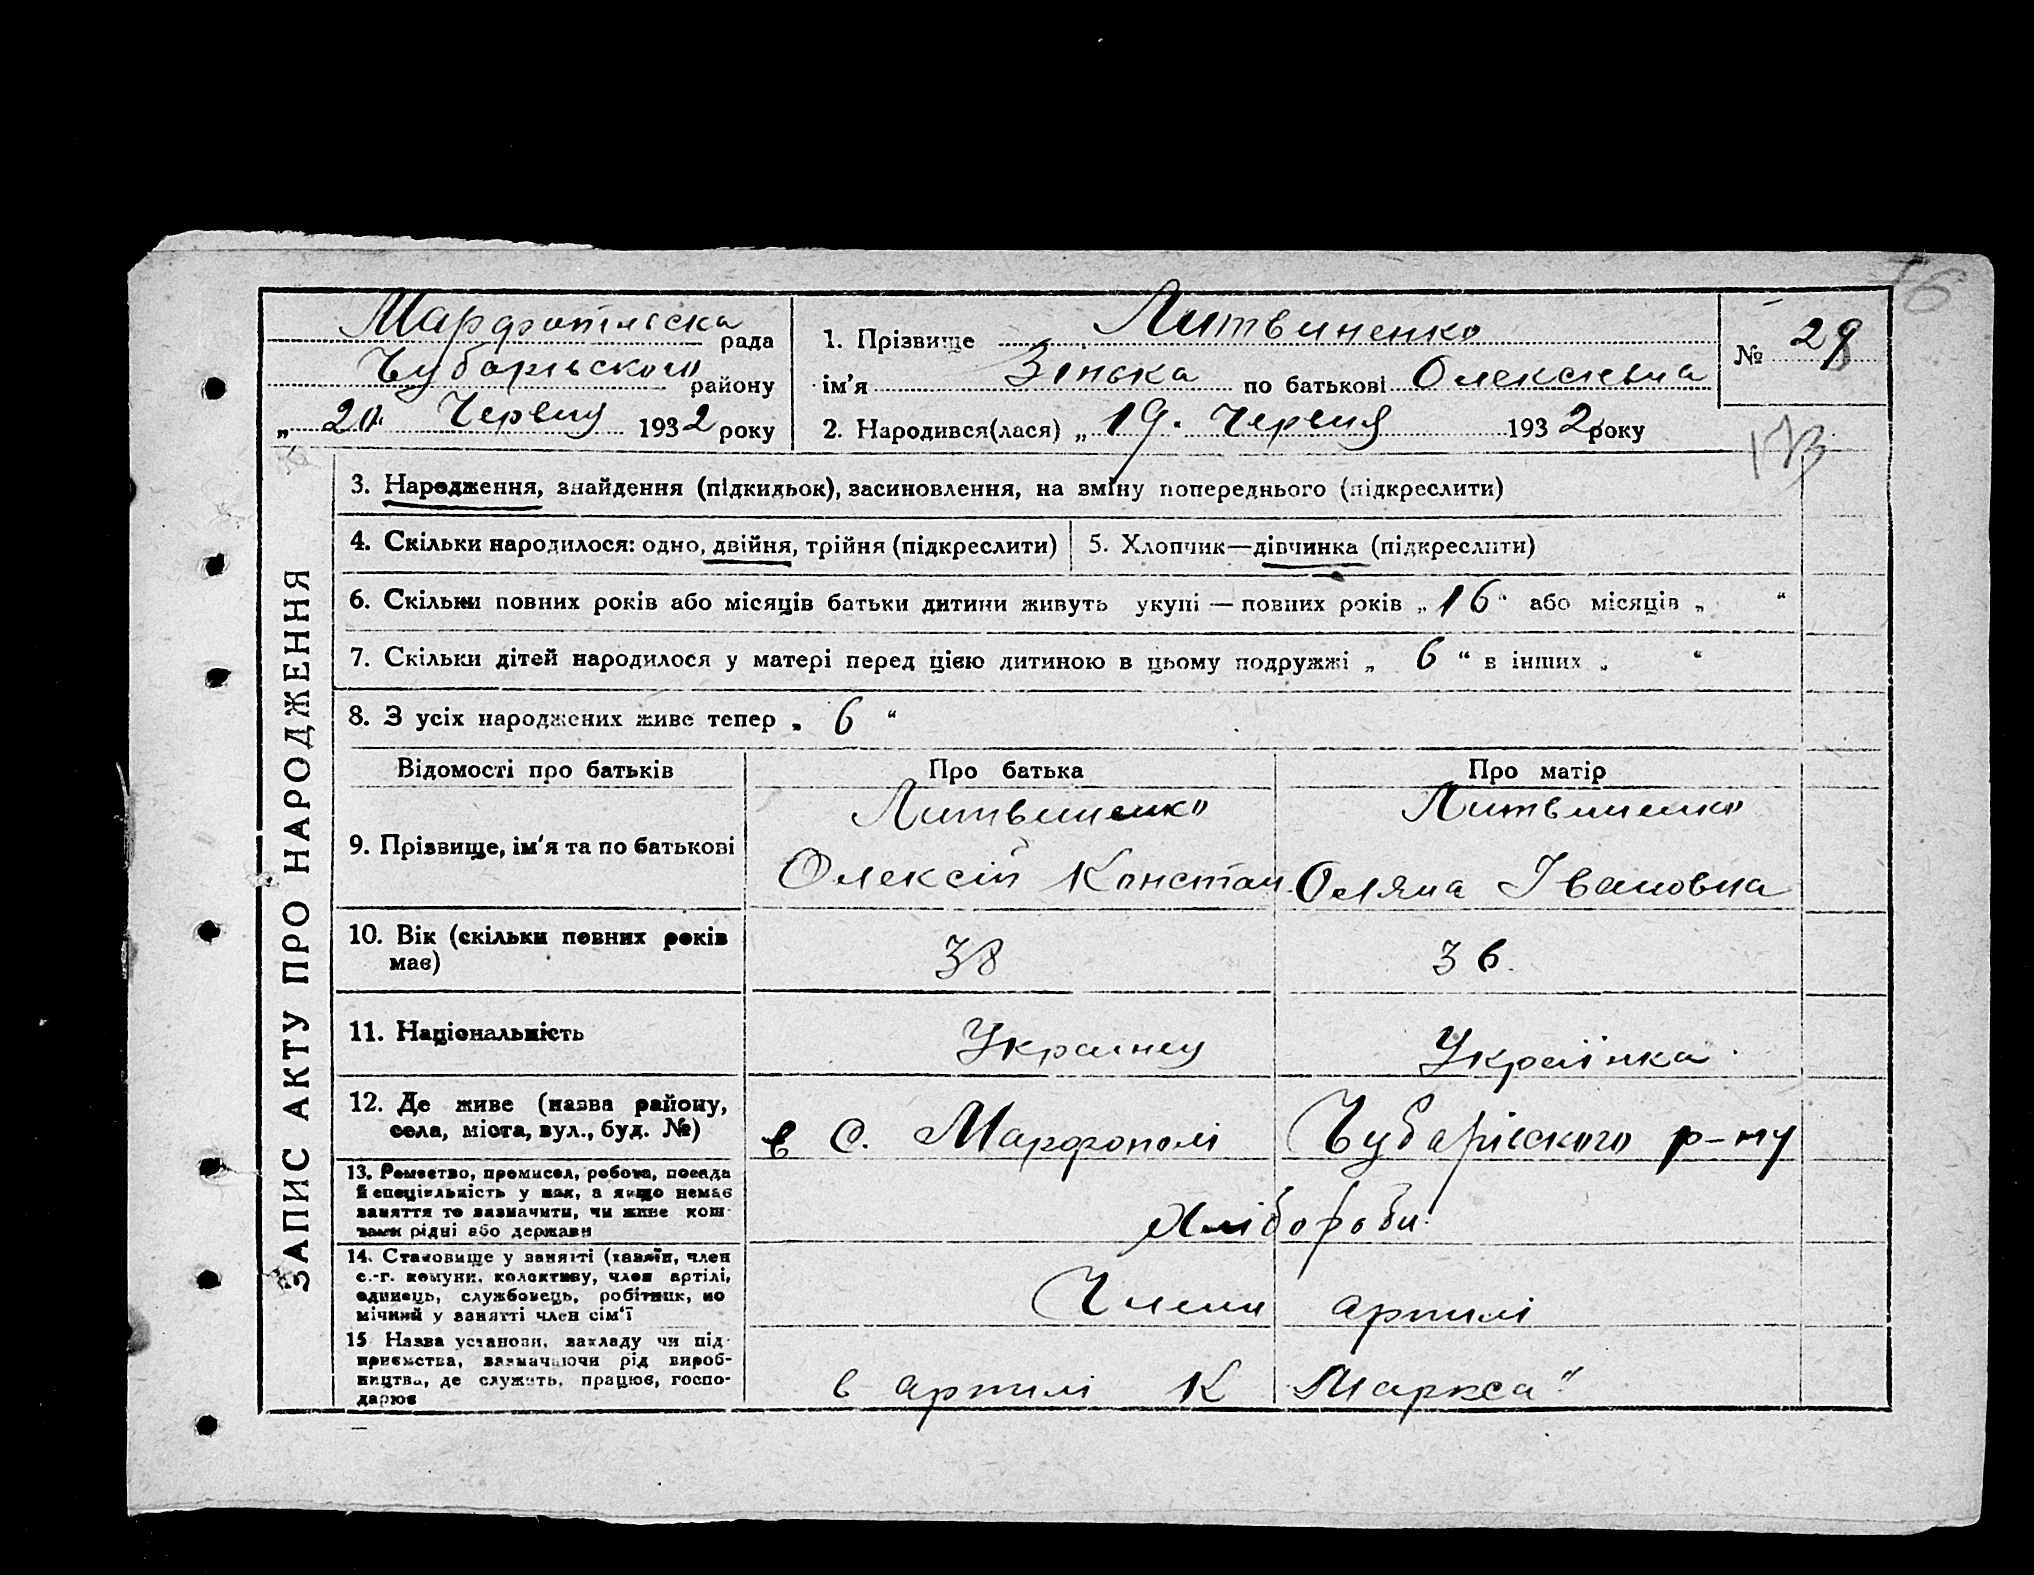 16
Марфопільска рада
Чубарівського району
„ 20 " Червня 1932 року
1. Прізвище Литвиненко
ім'я Зінька по батькові Олексієвна
2. Народився(лася) „ 19. Червня 1932 року
№ 28
173
ЗАПИС АКТУ ПРО НАРОДЖЕННЯ
3. Народження, знайдення (підкидьок), засиновлення, на зміну попереднього (підкреслити)
4. Скільки народилося: одно, двійня, трійня (підкреслити) 5. Хлопчик—дівчинка (підкреслити)
6. Скільки повних років або місяців батьки дитини живуть укупі — повних років „ 16 “ або місяців „ “
7. Скільки дітей народилося у матері перед цією дитиною в цьому подружжі „ 6 “ в інших „ “
8. З усіх народжених живе тепер „ 6 “
Відомості про батьків Про батька Про матір
9. Прізвище, ім'я та по батькові
Литвиненко Литвиненко
Олексій Констан. Оляна Івановна
10. Вік (скільки повних років
має)
38 36.
11. Національність Украинец Українка
12. Де живе (назва району,
села, міста, вул., буд. №)
в с. Марфополі Чубарівського р-ну
13. Ремество, промисел, робота, посада
й спеціяльність у них, а якщо немає
заняття то зазначити, чи живе кош-
тами рідні або держави
Хлібороби
14. Становище у занятті (хазяїн, член
с.-г. комуни, колективу, член артілі,
одинець, службовець, робітник, по
мічний у занятті член сім'ї
Члени артилі
15 Назва установи, закладу чи під-
приємства, зазначаючи рід вироб-
ництва, де служить, працює, госпо-
дарює
в артилі К Маркса"